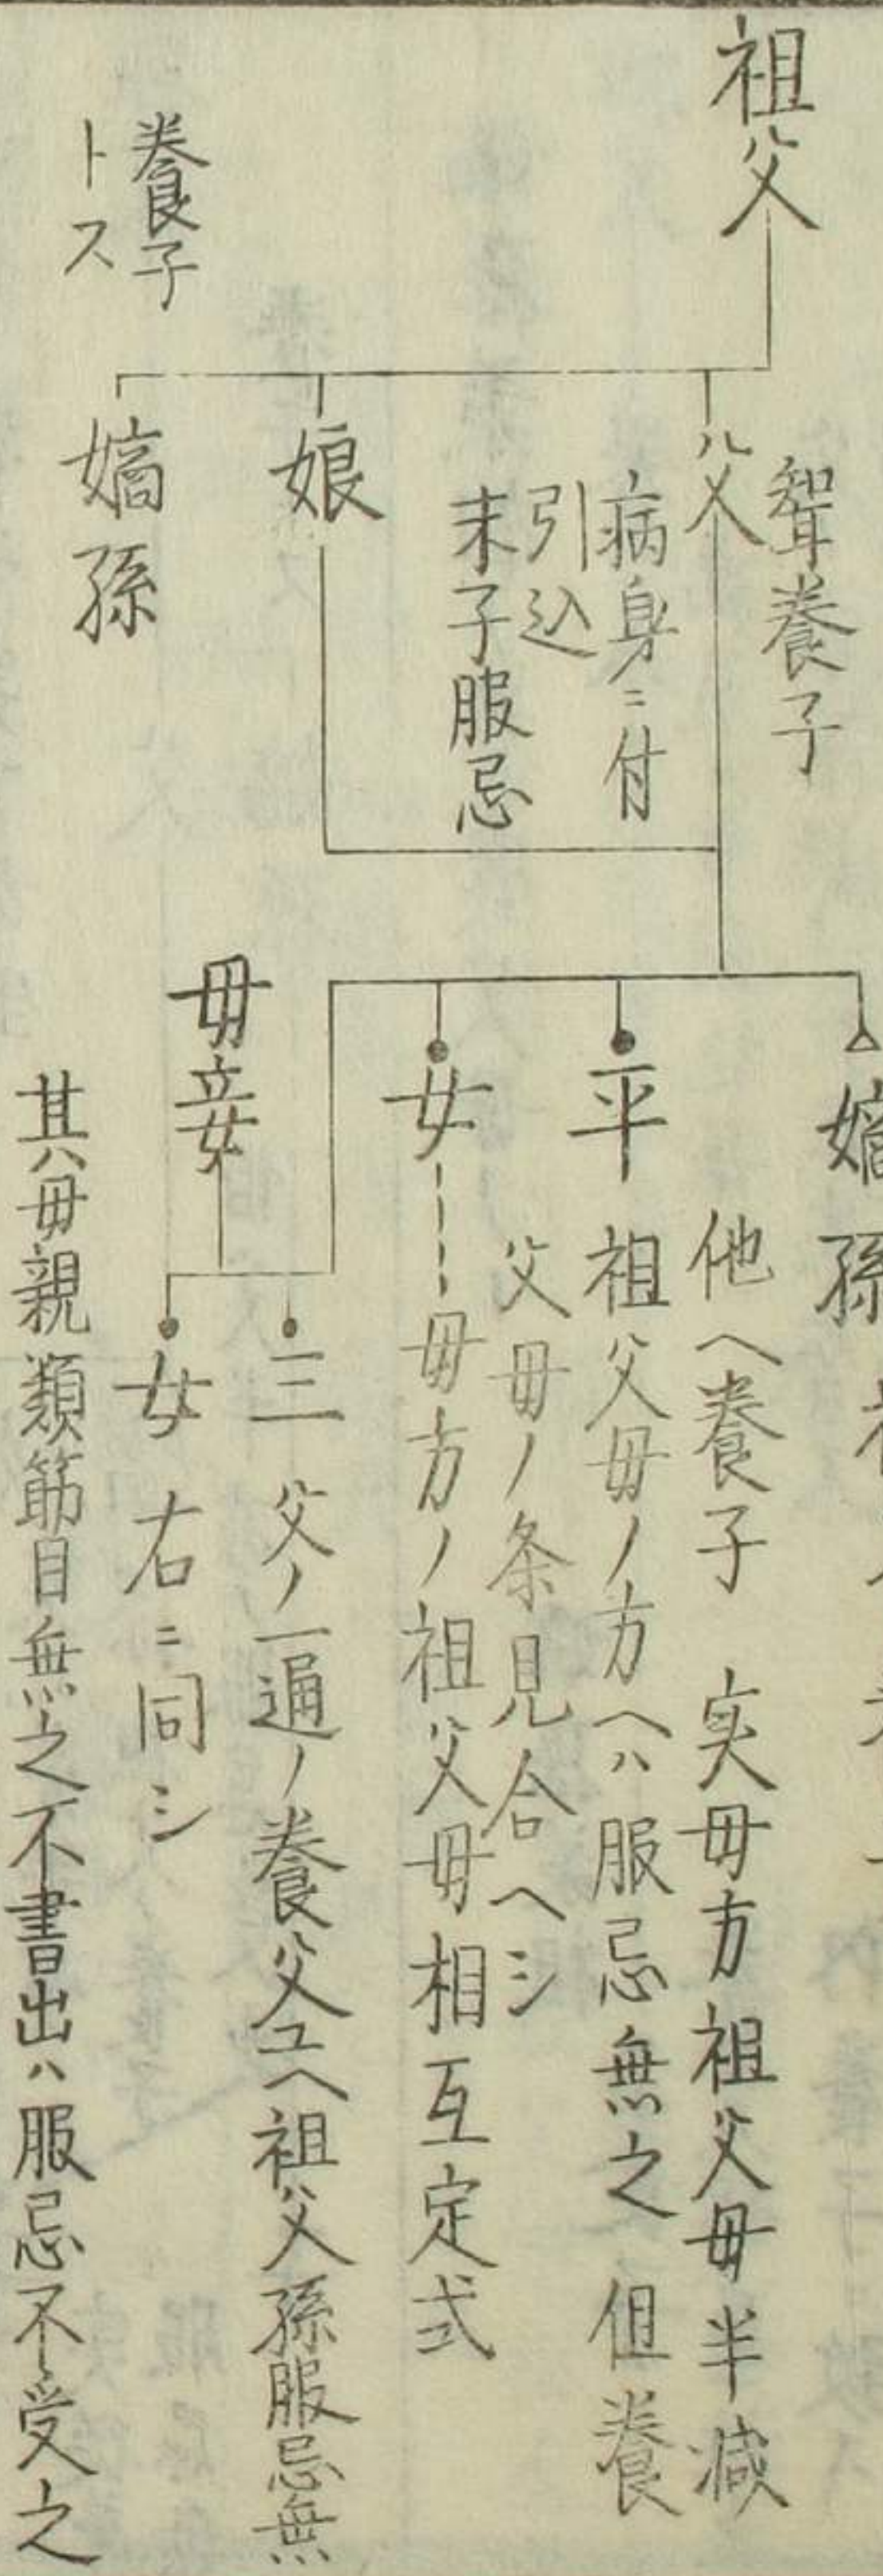 祖父
聟養子
父
病身ニ付
引込
末子服忌
娘
養子
トス
嫡孫
嫡孫
他ヘ養子 実母方祖父母半減
平 祖父母ノ方ヘハ服忌無之 但養
父母ノ条見合ヘシ
女 母方ノ祖父母相互定式
母妾
三 父ノ一遍ノ養父ユヘ祖父孫服忌無
女 右ニ同シ
其母親類筋目無之不書出ハ服忌不受之